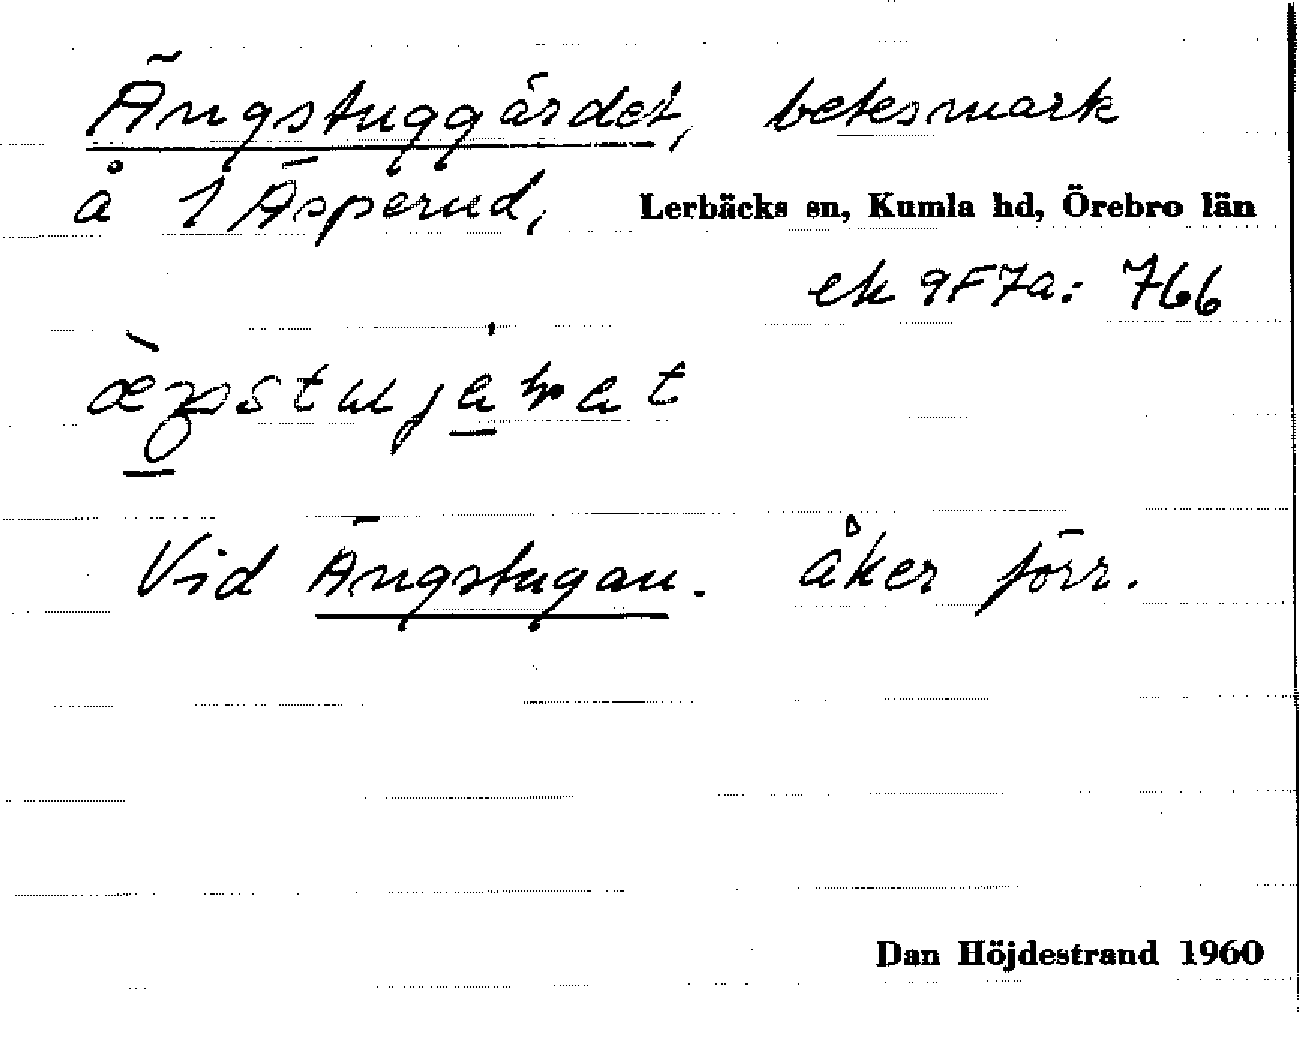 Ängstuggärdet, betesmark
å 1 Äsperud, Lerbäcks sn, Kumla hd, Örebro län
ek 9F7a: 766
Vid Ängstugan. åker förr.
Dan Höjdestrand 1960